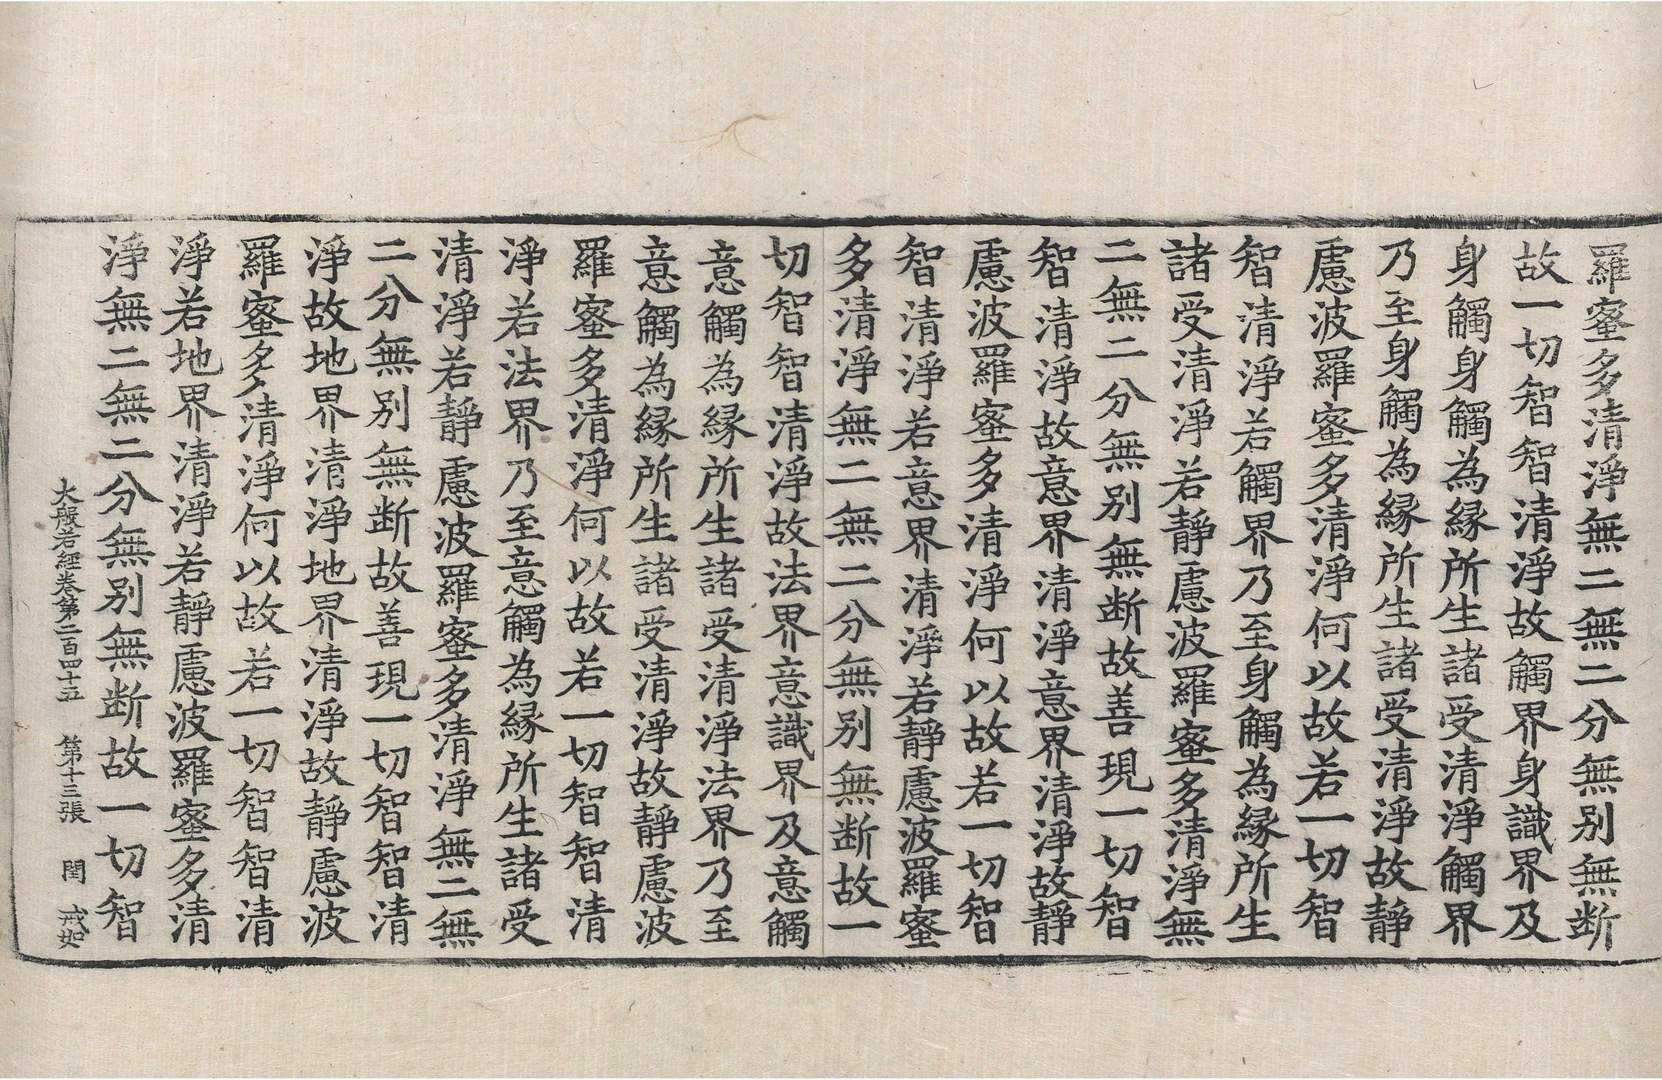 羅蜜多清淨無二無二分無別無断
故一切智智清淨故觸界身識界及
身觸身觸為縁所生諸受清淨觸界
乃至身觸為縁所生諸受清淨故静
慮波羅蜜多清淨何以故若一切智
智清淨若觸界乃至身觸為縁所生
諸受清淨若靜慮波羅蜜多清淨無
二無二分無別無断故善現一切智
智清淨故意界清淨意界清淨故靜
慮波羅蜜多清淨何以故若一切智
智清淨若意界清淨若靜慮波羅蜜
多清淨無二無二分無別無断故一
切智智清淨故法界意識界及意觸
意觸為縁所生諸受清淨法界乃至
意觸為縁所生諸受清淨故靜慮波
羅蜜多清淨何以故若一切智智清
淨若法界乃至意觸為縁所生諸受
清淨若靜慮波羅蜜多清淨無二無
二分無別無断故善現一切智智清
淨故地界清淨地界清淨故靜慮波
羅蜜多清淨何以故若一切智智清
淨若地界清淨若靜慮波羅蜜多清
淨無二無二分無別無断故一切智
大般若經卷第二百四十五 第十三張 閏 戒如